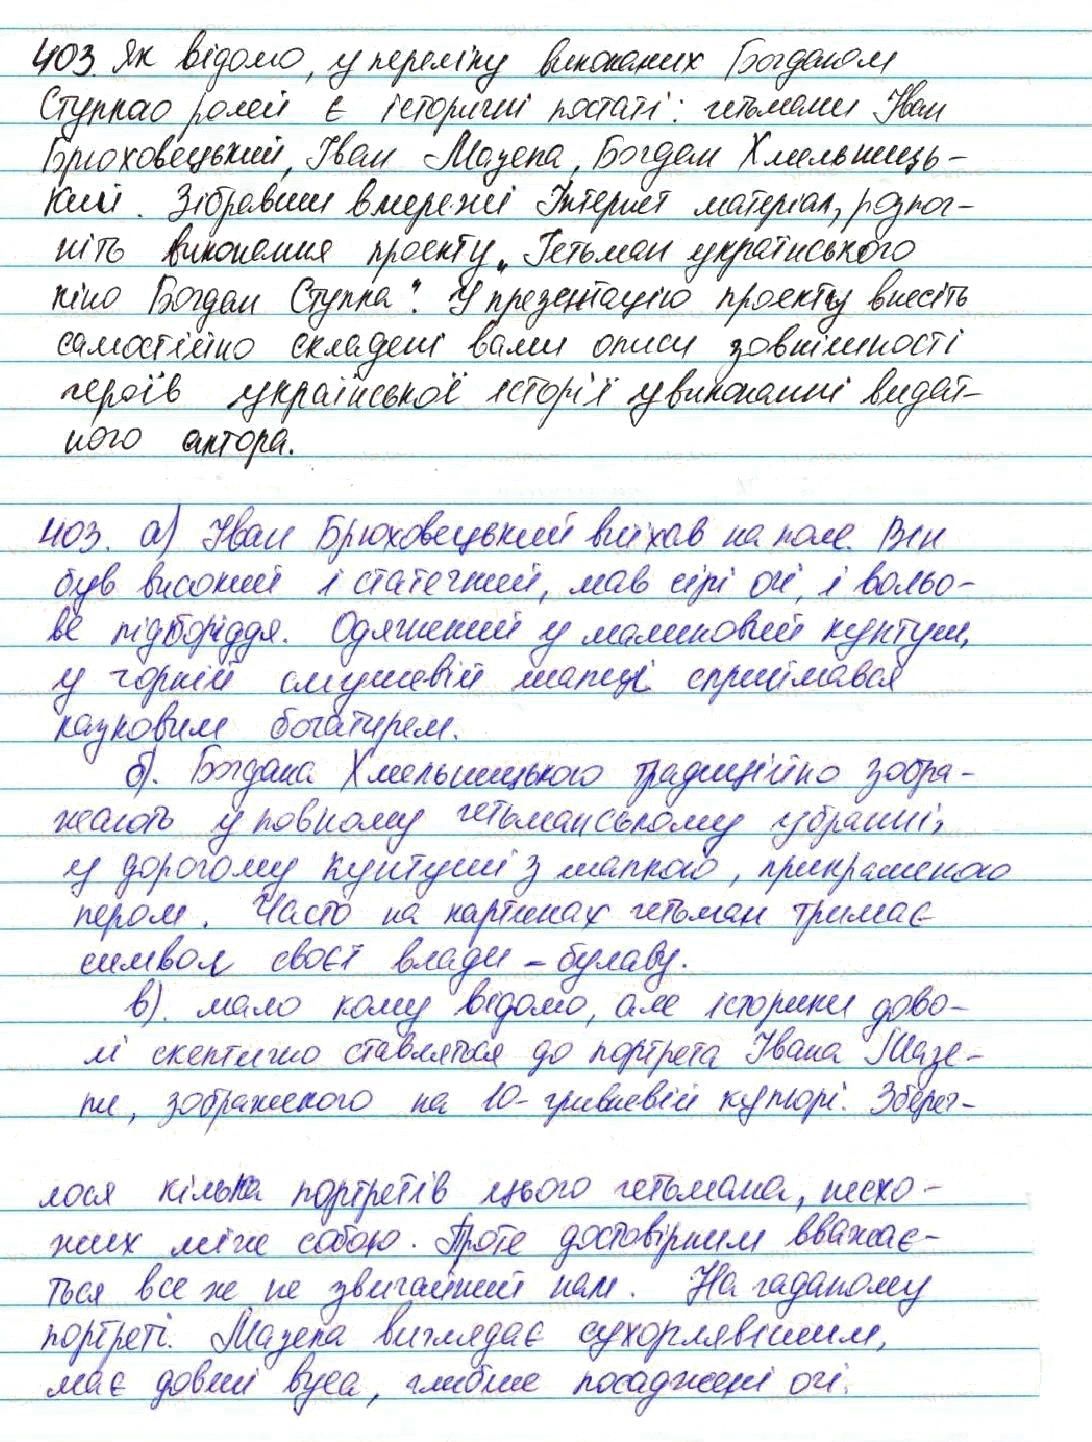 403. Як відомо, у переліку виконаних Богданом
Ступкою ролей є історичні постаті: гетьмани Іван
Брюховецький, Іван Мазепа, Богдан Хмельниць-
кий. Зібравши в мережі Інтернет матеріал, розпоч-
ніть виконання проекту „Гетьман українського
кіно Богдан Ступка". У презентацію проекту внесіть
самостійно складені вами описи зовнішності
героїв української історії у виконанні видат-
ного актора.
403. а) Іван Брюховецький виїхав на поле. Він
був високий і статечний, мав сірі очі, і вольо-
ве підборіддя. Одягнений у малиновий кунтуш,
у чорній смушевій шапці сприймався
казковим богатирем.
б). Богдана Хмельницького традиційно зобра-
жають у повному гетьманському убранні,
у дорогому кунтуші з шапкою, прикрашеною
пером. Часто на картинах гетьман тримає
символ своєї влади - булаву.
в). мало кому відомо, але історики дово-
лі скептично ставляться до портрета Івана Мазе-
пи, зображеного на 10-гривневій купюрі. Зберег-
лося кілька портретів цього гетьмана, несхо-
жих між собою. Проте достовірним вважає-
ться все ж не звичайний нам. На гаданому
портреті. Мазепа виглядає сухорлявішим,
має довші вуса, глибше посаджені очі.